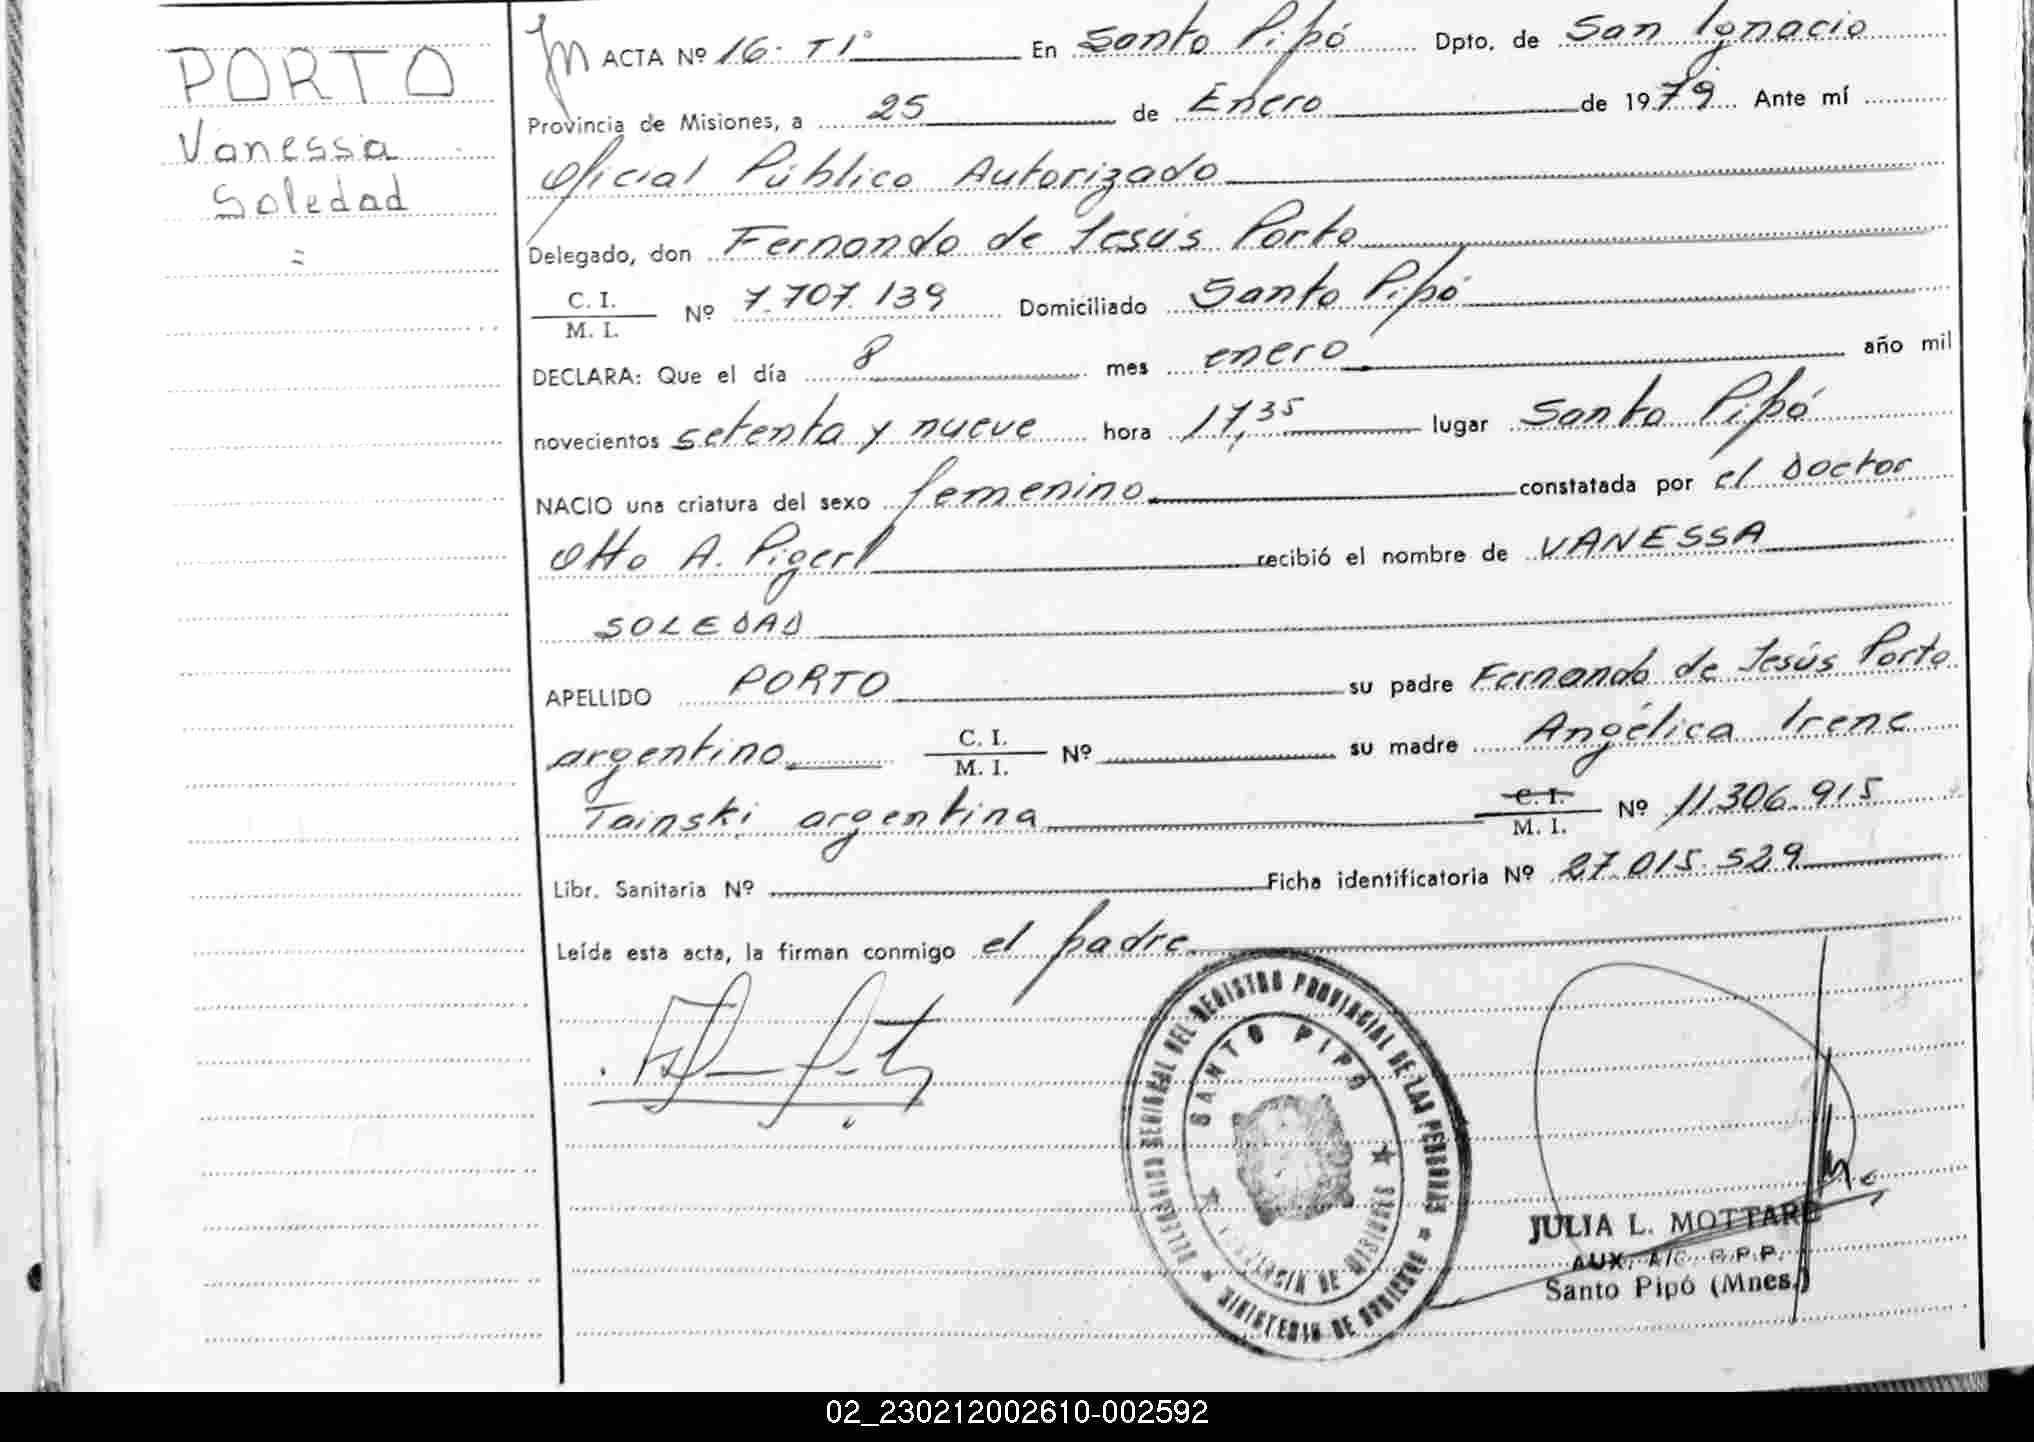 PORTO
Vanessa
Soledad
=
ACTA Nº 16- T1º En Santo Pipó Dpto. de San Ignacio
Provincia de Misiones, a 25 de Enero de 1979. Ante mí
Oficial Público Autorizado
Delegado, don Fernando de Jesús Porto
C. I.
M. I.
Nº 7.707.139 Domiciliado Santo Pipó
DECLARA: Que el día 8 mes enero año mil
novecientos setenta y nueve hora 17,35 lugar Santo Pipó
NACIO una criatura del sexo femenino constatada por el Doctor
Otto A. Pigerl recibió el nombre de VANESSA
SOLEDAD
APELLIDO PORTO su padre Fernando de Jesús Porto
argentino C. I. M. I. Nº su madre Angélica Irene
Tainski argentina C. I. M. I. Nº 11.306.915
Libr. Sanitaria Nº Ficha identificatoria Nº 27.015.529
Leída esta acta, la firman conmigo el padre
DELEGACION SECCIONAL DEL REGISTRO PROVINCIAL DE LAS PERSONAS
MINISTERIO DE GOBIERNO
SANTO PIPO
PROVINCIA DE MISIONES
JULIA L. MOTTARE
AUX. A/C. R.P.P.
Santo Pipó (Mnes.)
02_230212002610-002592